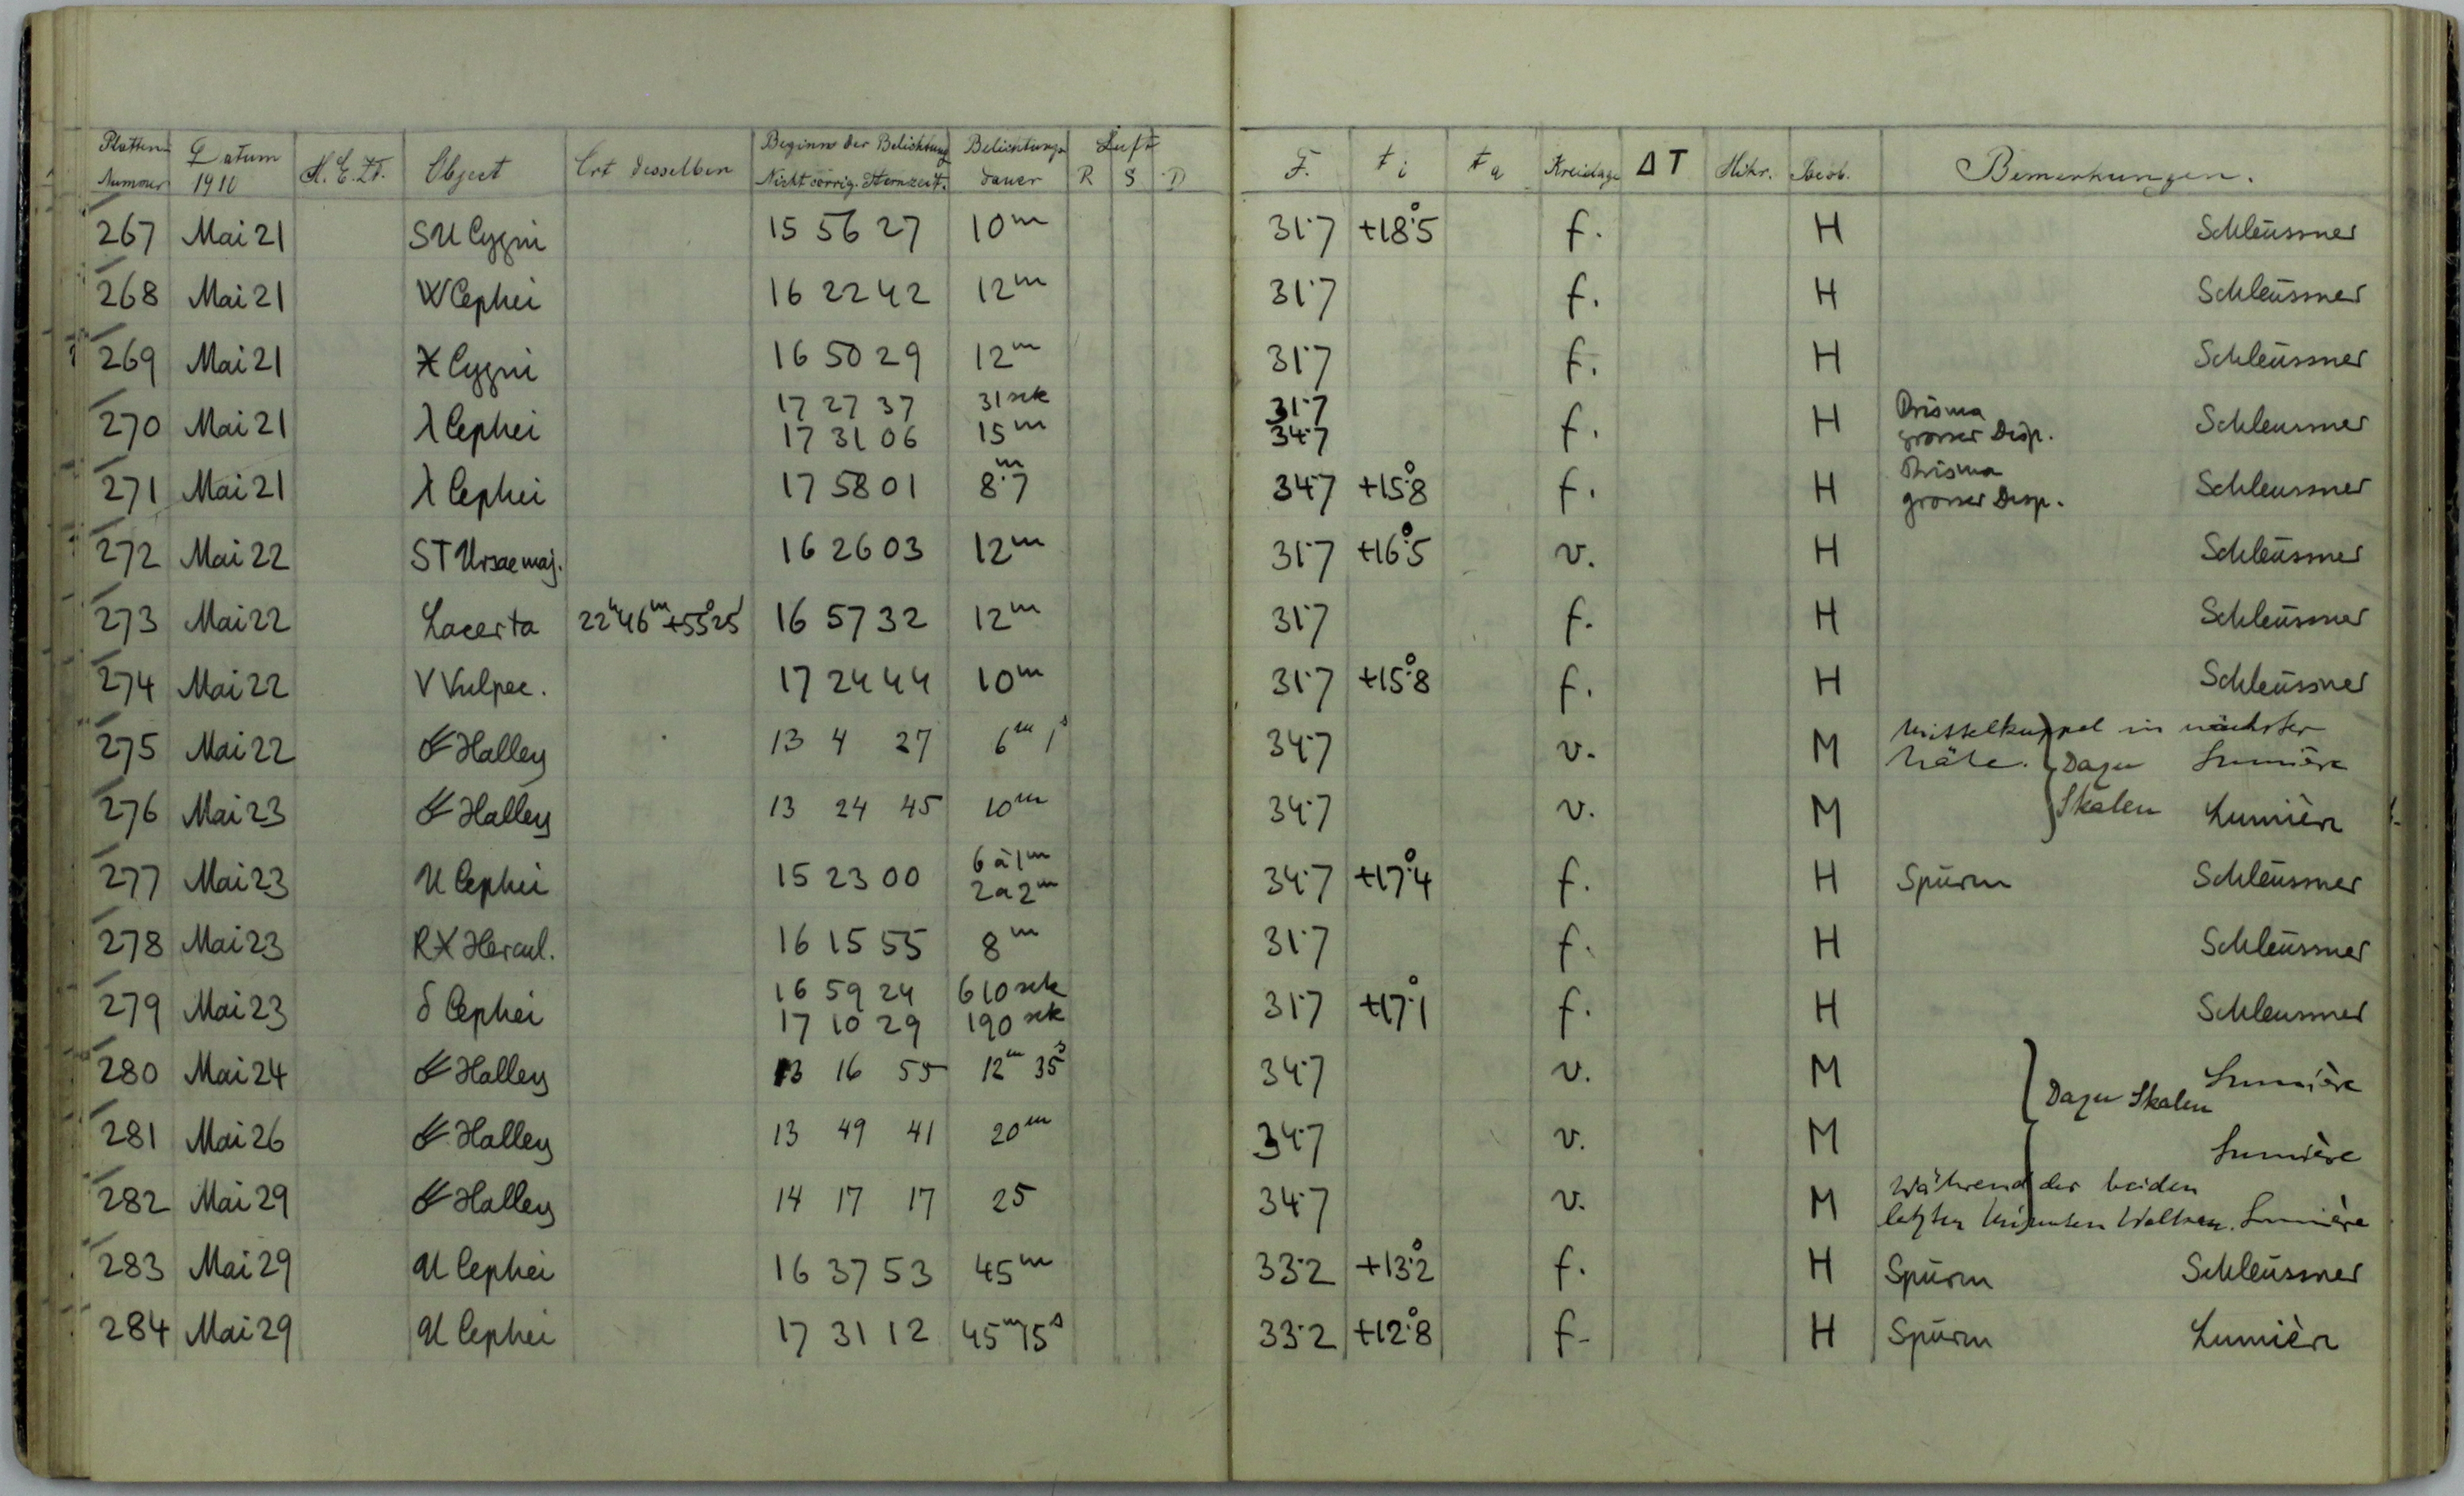 Platten- Nummer Datum 1910 M.E.Zt. Object Ort desselben Beginn der Belichtung Nicht corrig. Sternzeit. Belichtungs- dauer Luft R S D F. t i t a Kreislage ΔT Mikr. Beob. Bemerkungen.
267 Mai 21 SU Cygni 15 56 27 10m 31.7 +18°.5 f. H Schleussner
268 Mai 21 W Cephei 16 22 42 12m 31.7 f. H Schleussner
269 Mai 21 X Cygni 16 50 29 12m 31.7 f. H Schleussner
270 Mai 21 λ Cephei 17 27 37 31 sek 31.7 f. H Prisma Schleussner
17 31 06 15m 34.7 grosser Disp.
271 Mai 21 λ Cephei 17 58 01 8m.7 34.7 +15°.8 f. H Prisma Schleussner
grosser Disp.
272 Mai 22 ST Ursae maj. 16 26 03 12m 31.7 +16°.5 v. H Schleussner
273 Mai 22 Lacerta 22h46m +55°25' 16 57 32 12m 31.7 f. H Schleussner
274 Mai 22 V Vulpec. 17 24 44 10m 31.7 +15°.8 f. H Schleussner
275 Mai 22 ☄ Halley 13 4 27 6m 1s 34.7 v. M Mittelkuppel in nächster
Nähe. } Dazu Lumière
276 Mai 23 ☄ Halley 13 24 45 10m 34.7 v. M Skalen Lumière
277 Mai 23 U Cephei 15 23 00 6 à 1m 34.7 +17°.4 f. H Spuren Schleussner
2 a 2m
278 Mai 23 RX Hercul. 16 15 55 8m 31.7 f. H Schleussner
279 Mai 23 δ Cephei 16 59 24 610 sek 31.7 +17°.1 f. H Schleussner
17 10 29 190 sek
280 Mai 24 ☄ Halley 13 16 55 12m 35s 34.7 v. M Lumière
} Dazu Skalen
281 Mai 26 ☄ Halley 13 49 41 20m 34.7 v. M Lumière
282 Mai 29 ☄ Halley 14 17 17 25 34.7 v. M Während der beiden
letzten Minuten Wolken. Lumière
283 Mai 29 U Cephei 16 37 53 45m 33.2 +13°.2 f. H Spuren Schleussner
284 Mai 29 U Cephei 17 31 12 45m 15s 33.2 +12°.8 f- H Spuren Lumière